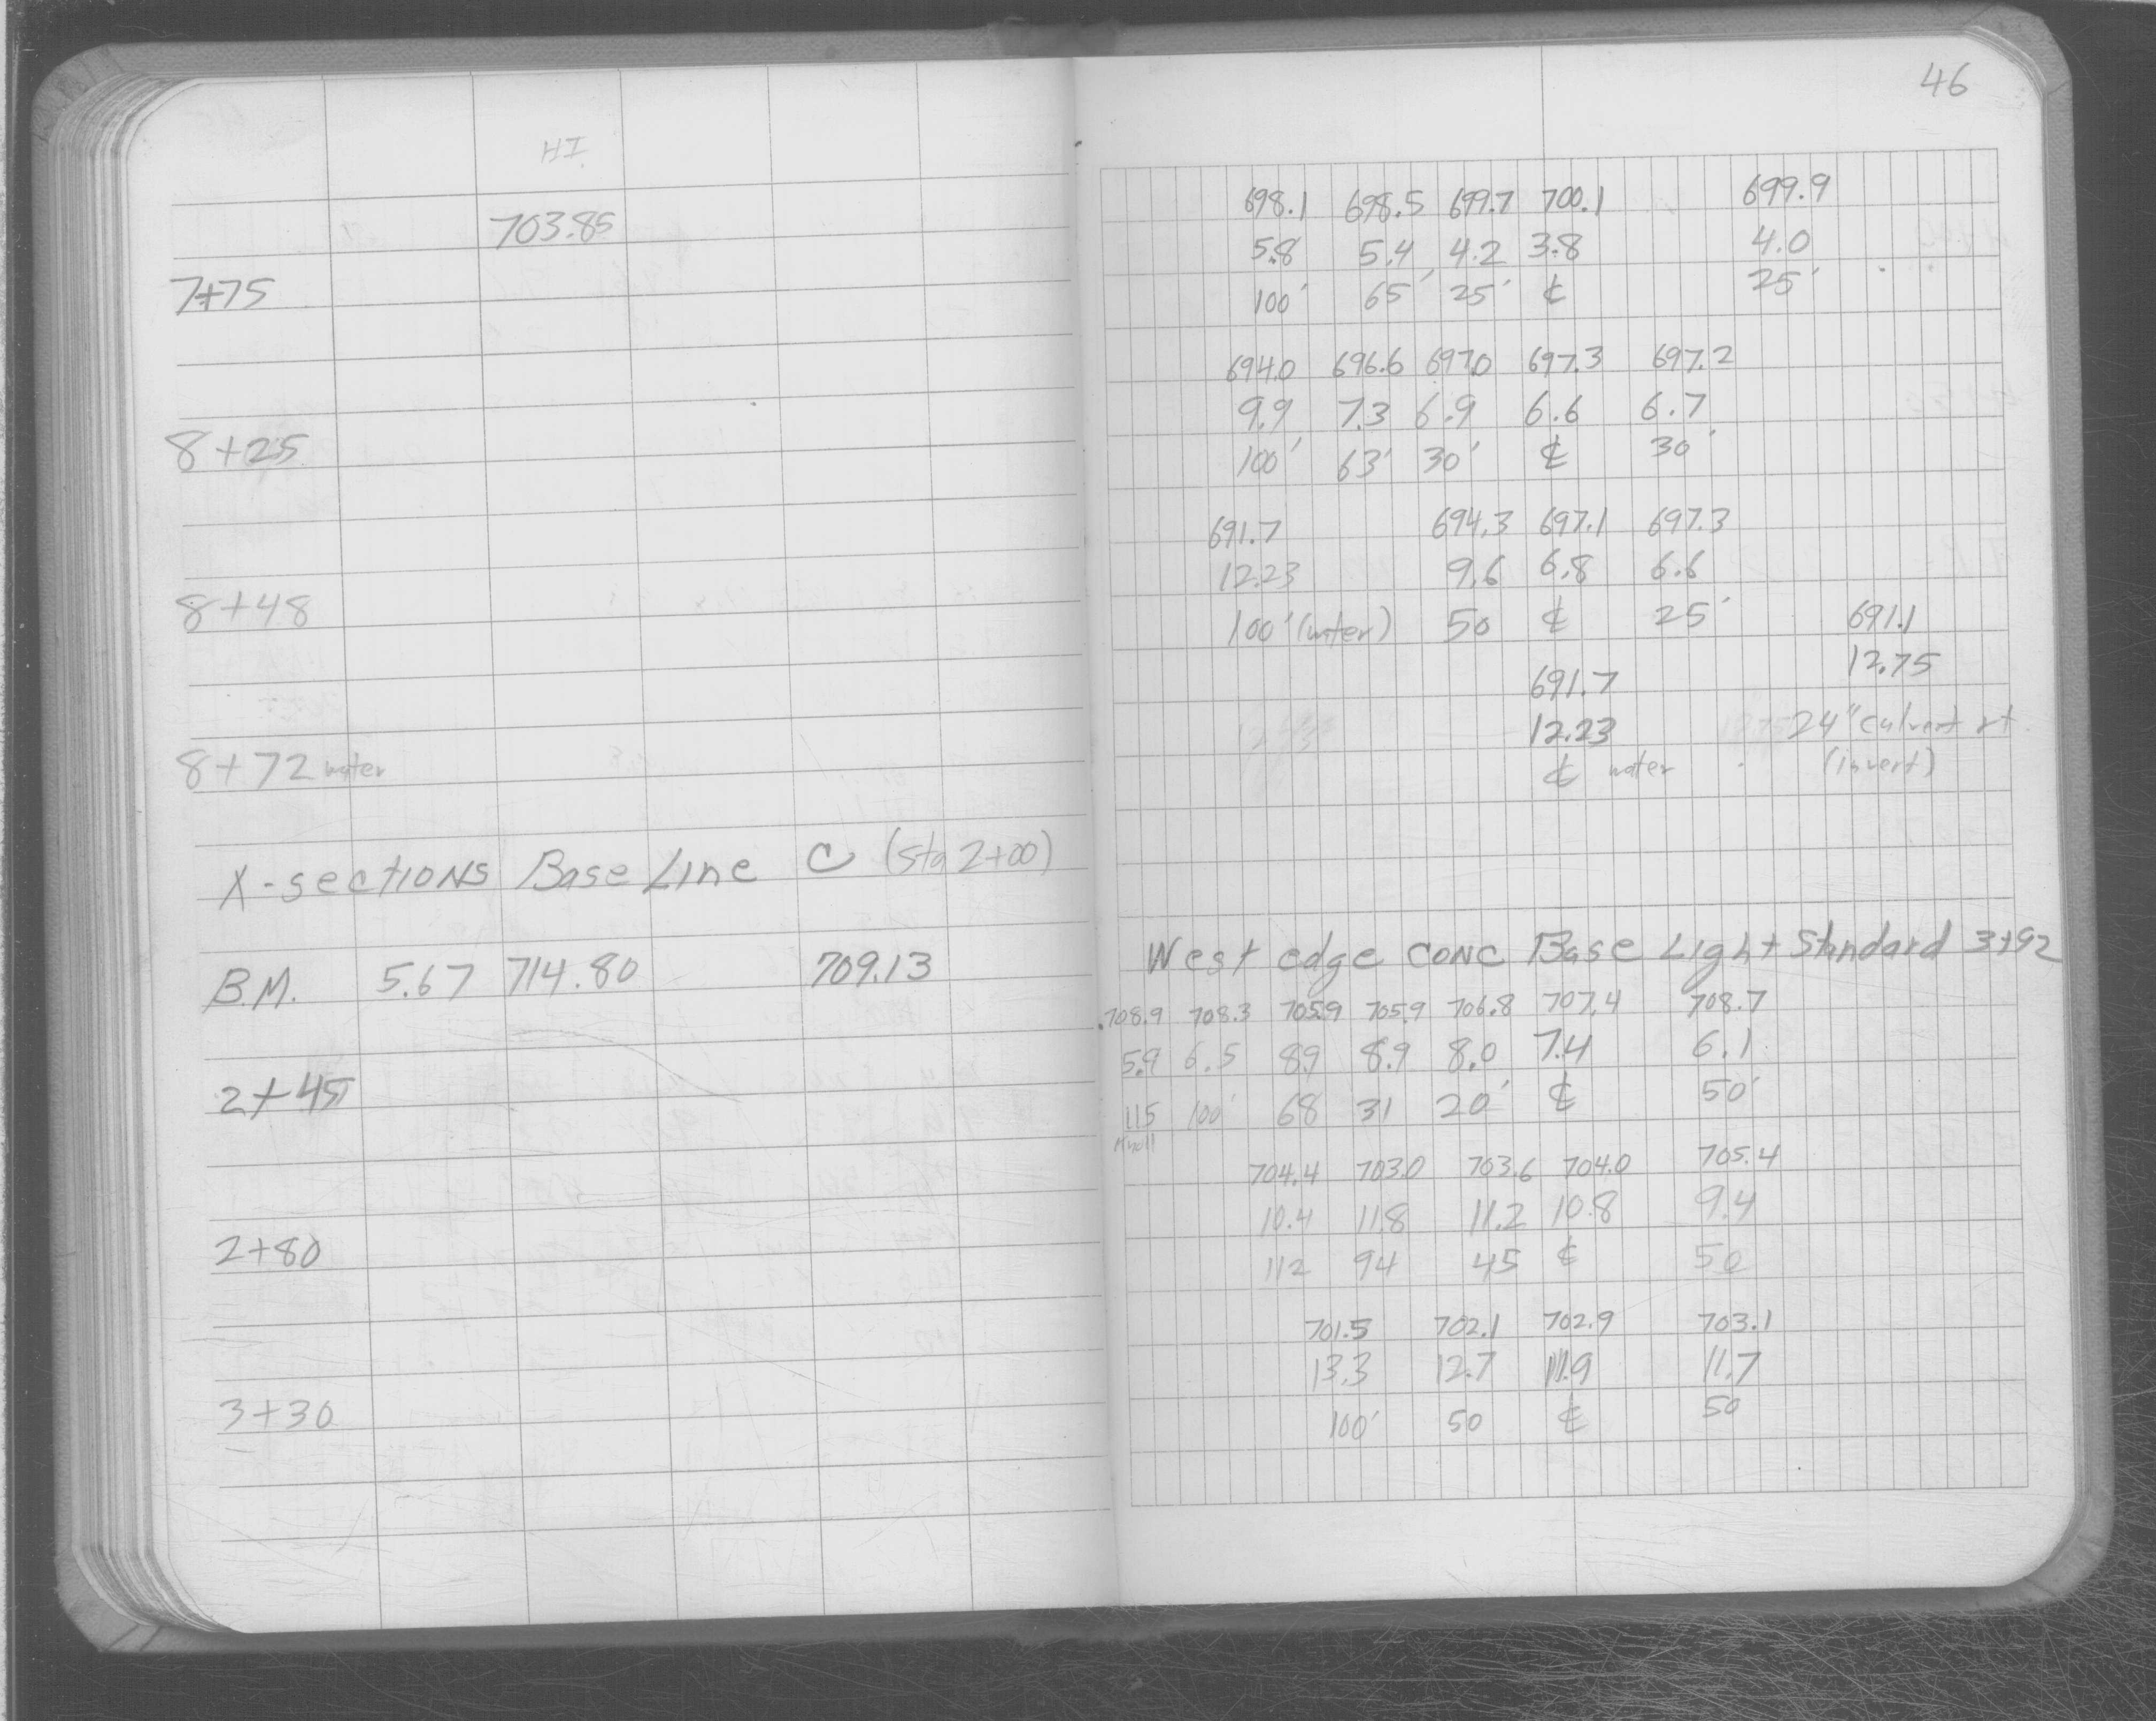 46
HI
703.85
698.1 698.5 699.7 700.1 699.9
5.8 5.4 4.2 3.8 4.0
7+75
100' 65' 25' ℄ 25'
694.0 696.6 697.0 697.3 697.2
9.9 7.3 6.9 6.6 6.7
8+25
100' 63' 30' ℄ 30'
691.7 694.3 697.1 697.3
12.23 9.6 6.8 6.6
8+48
100' (water) 50 ℄ 25' 691.1
12.75
691.7
12.23 24" culvert rt
8+72 water
℄ water (invert)
X-sections Base Line C (sta 2+00)
West edge conc Base Light Standard 3+92
B.M. 5.67 714.80 709.13
708.9 708.3 705.9 705.9 706.8 707.4 708.7
5.9 6.5 8.9 8.9 8.0 7.4 6.1
2+45
115 100' 68 31 20' ℄ 50'
Knoll
704.4 703.0 703.6 704.0 705.4
10.4 11.8 11.2 10.8 9.4
2+80
112 94 45 ℄ 50
701.5 702.1 702.9 703.1
13.3 12.7 11.9 11.7
3+30
100' 50 ℄ 50